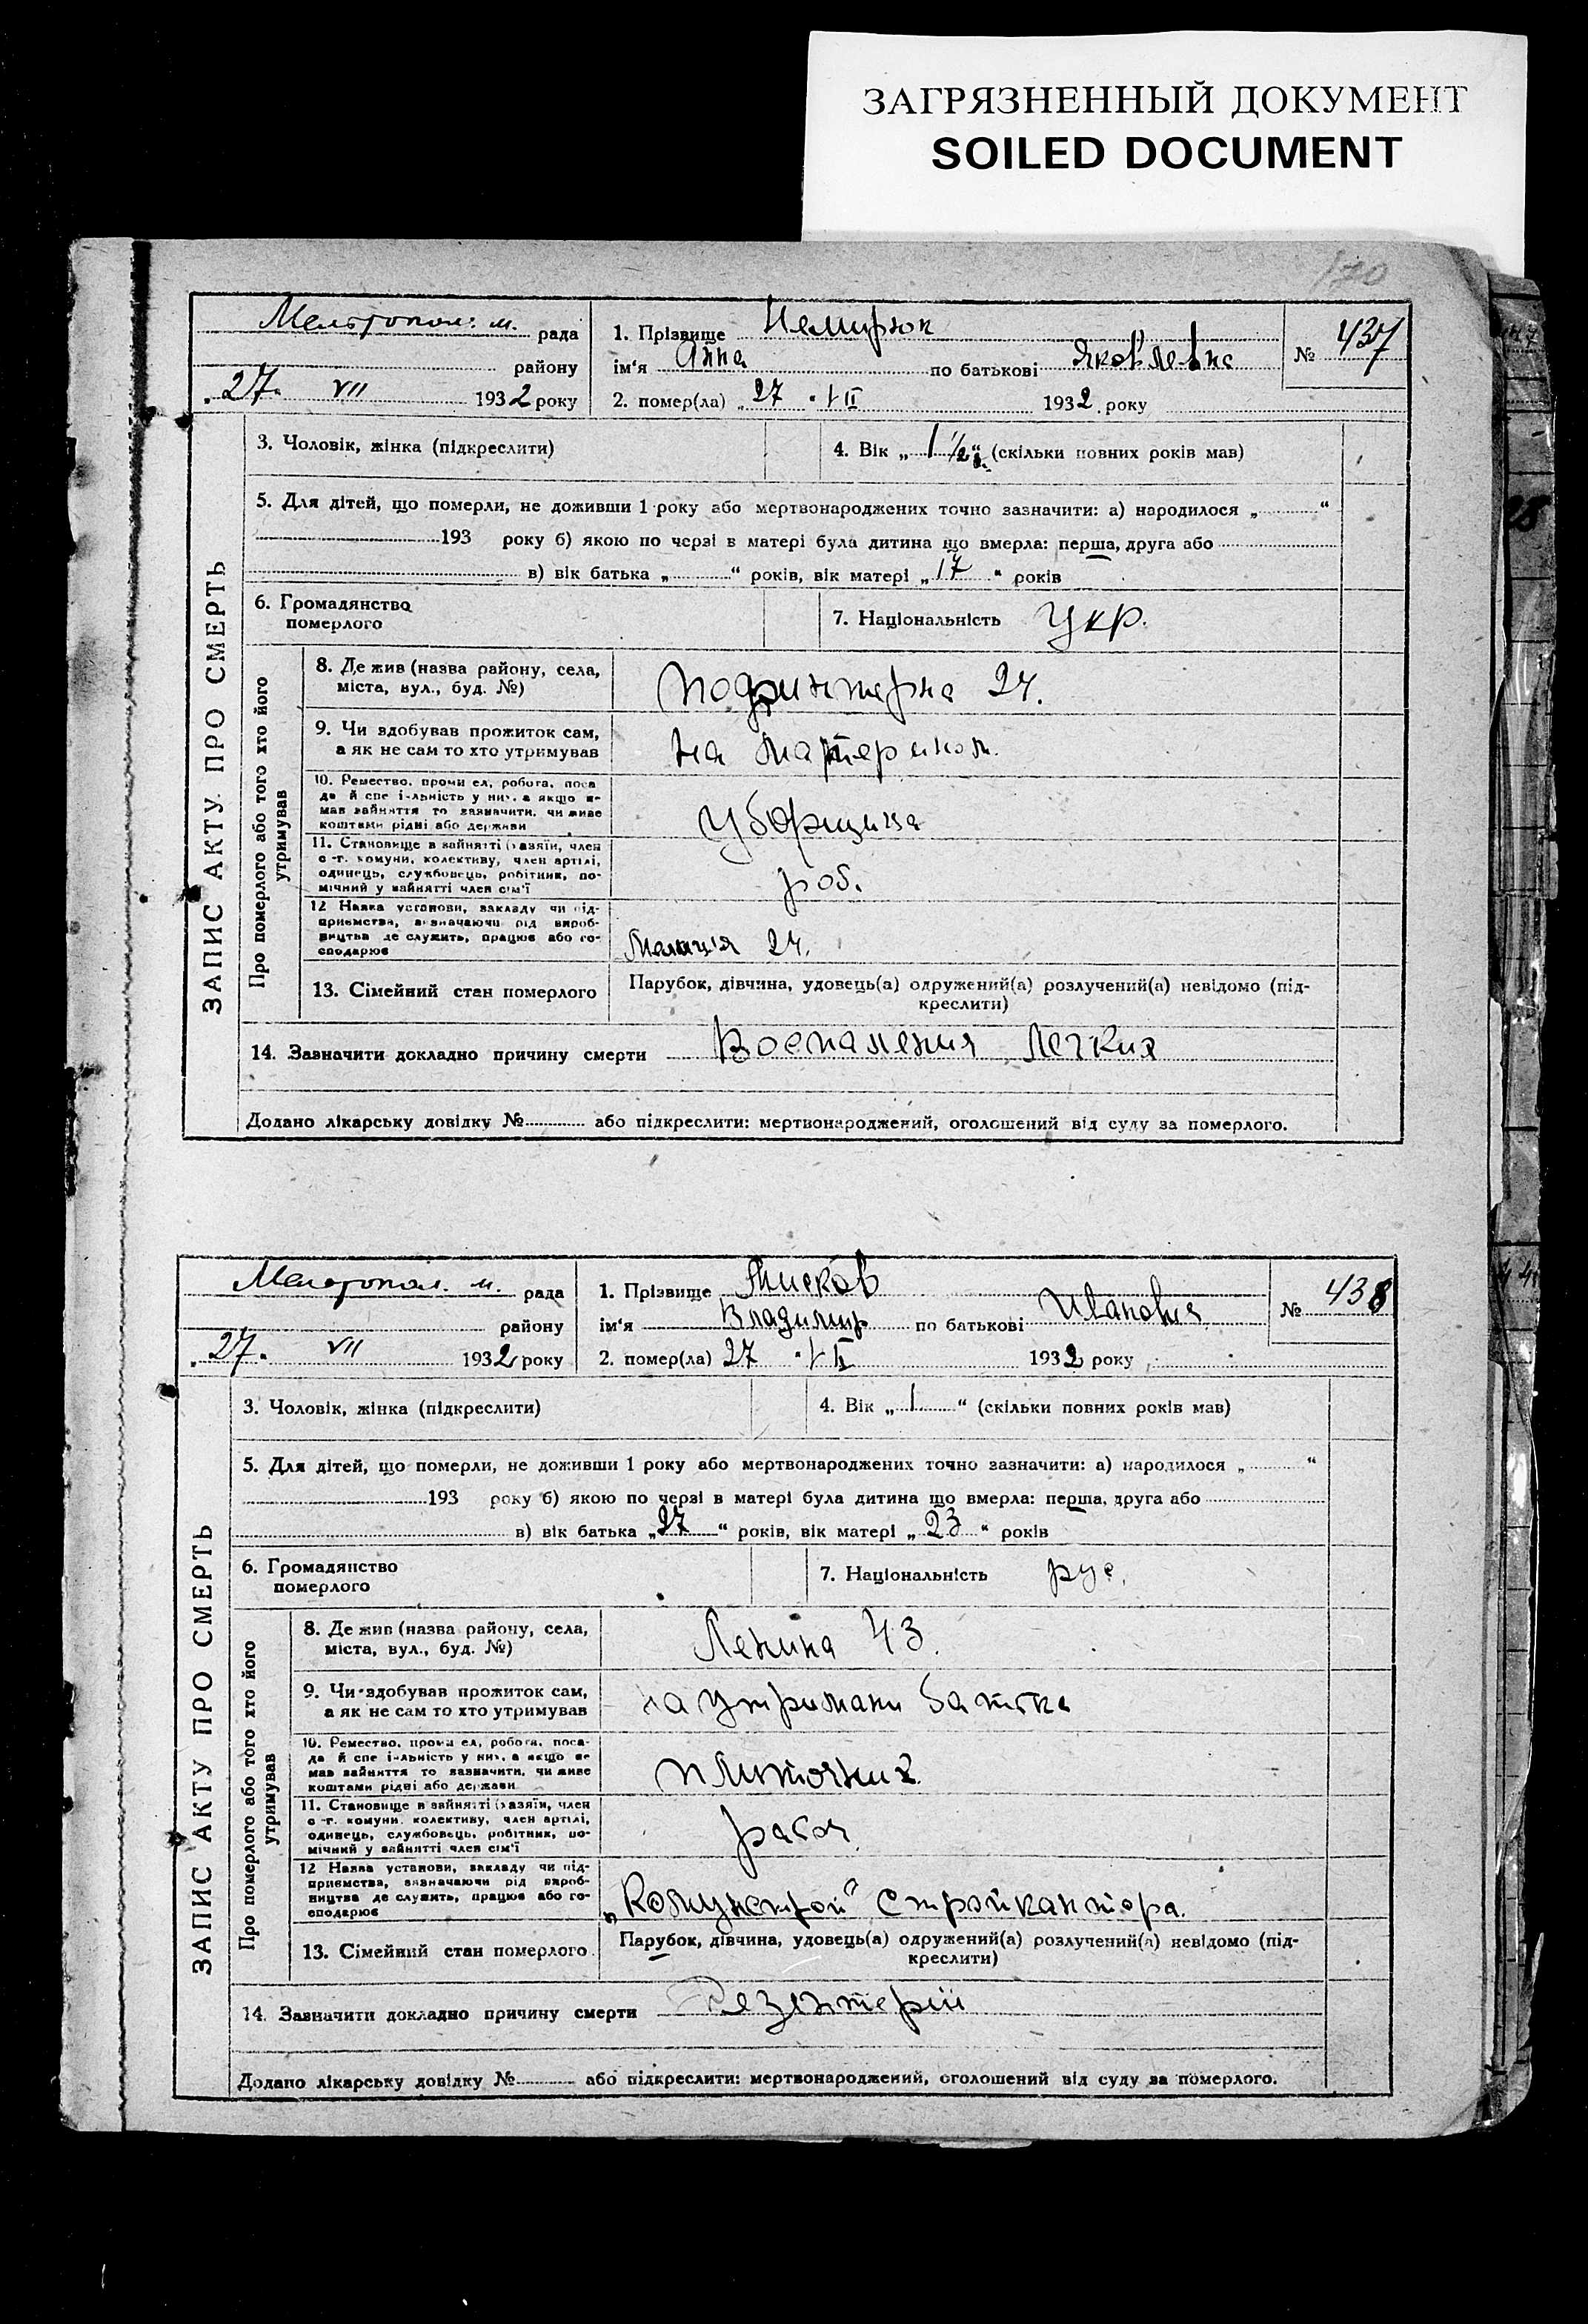 ЗАГРЯЗНЕННЫЙ ДОКУМЕНТ
SOILED DOCUMENT
170
ЗАПИС АКТУ ПРО СМЕРТЬ
Мелітопол. м. рада
району
„27“ VII 1932 року
1. Прізвище Немирюк
ім'я Анна по батькові Яковлевна
2. помер(ла) „27“ VII 1932 року
№ 437
3. Чоловік, жінка (підкреслити)
4. Вік „1 ½ “ (скільки повних років мав)
5. Для дітей, що померли, не доживши 1 року або мертвонароджених точно зазначити: а) народилося „ “
193 року б) якою по черзі в матері була дитина що вмерла: перша, друга або
в) вік батька „ “ років, вік матері „17“ років
6. Громадянство
померлого
7. Національність Укр.
Про померлого або того хто його
утримував
8. Де жив (назва району, села,
міста, вул., буд. №)
24.
9. Чи здобував прожиток сам,
а як не сам то хто утримував
на
10. Ремество, промисел, робота, поса
да й спеціяльність у них, а якщо не
мав зайняття то зазначити, чи живе
коштами рідні або держави
Уборщица
11. Становище в зайнятті (хазяїн, член
с.-г. комуни, колективу, член артілі,
одинець, службовець, робітник, по-
мічний у зайнятті член сім'ї
роб.
12 Назва установи, закладу чи під-
приємства, визначаючи рід вироб-
ництва де служить, працює або го-
сподарює
24.
13. Сімейний стан померлого
Парубок, дівчина, удовець(а) одружений(а) розлучений(а) невідомо (під-
креслити)
14. Зазначити докладно причину смерти Воспаления Легких
Додано лікарську довідку № або підкреслити: мертвонароджений, оголошений від суду за померлого.
ЗАПИС АКТУ ПРО СМЕРТЬ
Мелітопол. м. рада
району
„27“ VII 1932 року
1. Прізвище
ім'я Владимир по батькові Иванович
2. помер(ла) 27 “ VII 1932 року
№ 438
3. Чоловік, жінка (підкреслити)
4. Вік „1“ (скільки повних років мав)
5. Для дітей, що померли, не доживши 1 року або мертвонароджених точно зазначити: а) народилося „ “
193 року б) якою по черзі в матері була дитина що вмерла: перша, друга або
в) вік батька „27“ років, вік матері „23“ років
6. Громадянство
померлого
7. Національність рус.
Про померлого або того хто його
утримував
8. Де жив (назва району, села,
міста, вул., буд. №)
Ленина 43.
9. Чи здобував прожиток сам,
а як не сам то хто утримував
на утримани батька
10. Ремество, промисел, робота, поса-
да й спеціяльність у них, а якщо не
мав зайняття то зазначити, чи живе
коштами рідні або держави
11. Становище в зайнятті (хазяїн, член
с.-г. комуни, колективу, член артілі,
одинець, службовець, робітник, по-
мічний у зайнятті член сім'ї
рабоч.
12 Назва установи, закладу чи під-
приємства, визначаючи рід вироб-
ництва де служить, працює або го-
сподарює
„Комунстрой“ Стройкантора.
13. Сімейний стан померлого
Парубок, дівчина, удовець(а) одружений(а) розлучений(а) невідомо (під-
креслити)
14. Зазначити докладно причину смерти Дезентерііі
Додано лікарську довідку № або підкреслити: мертвонароджений, оголошений від суду за померлого.